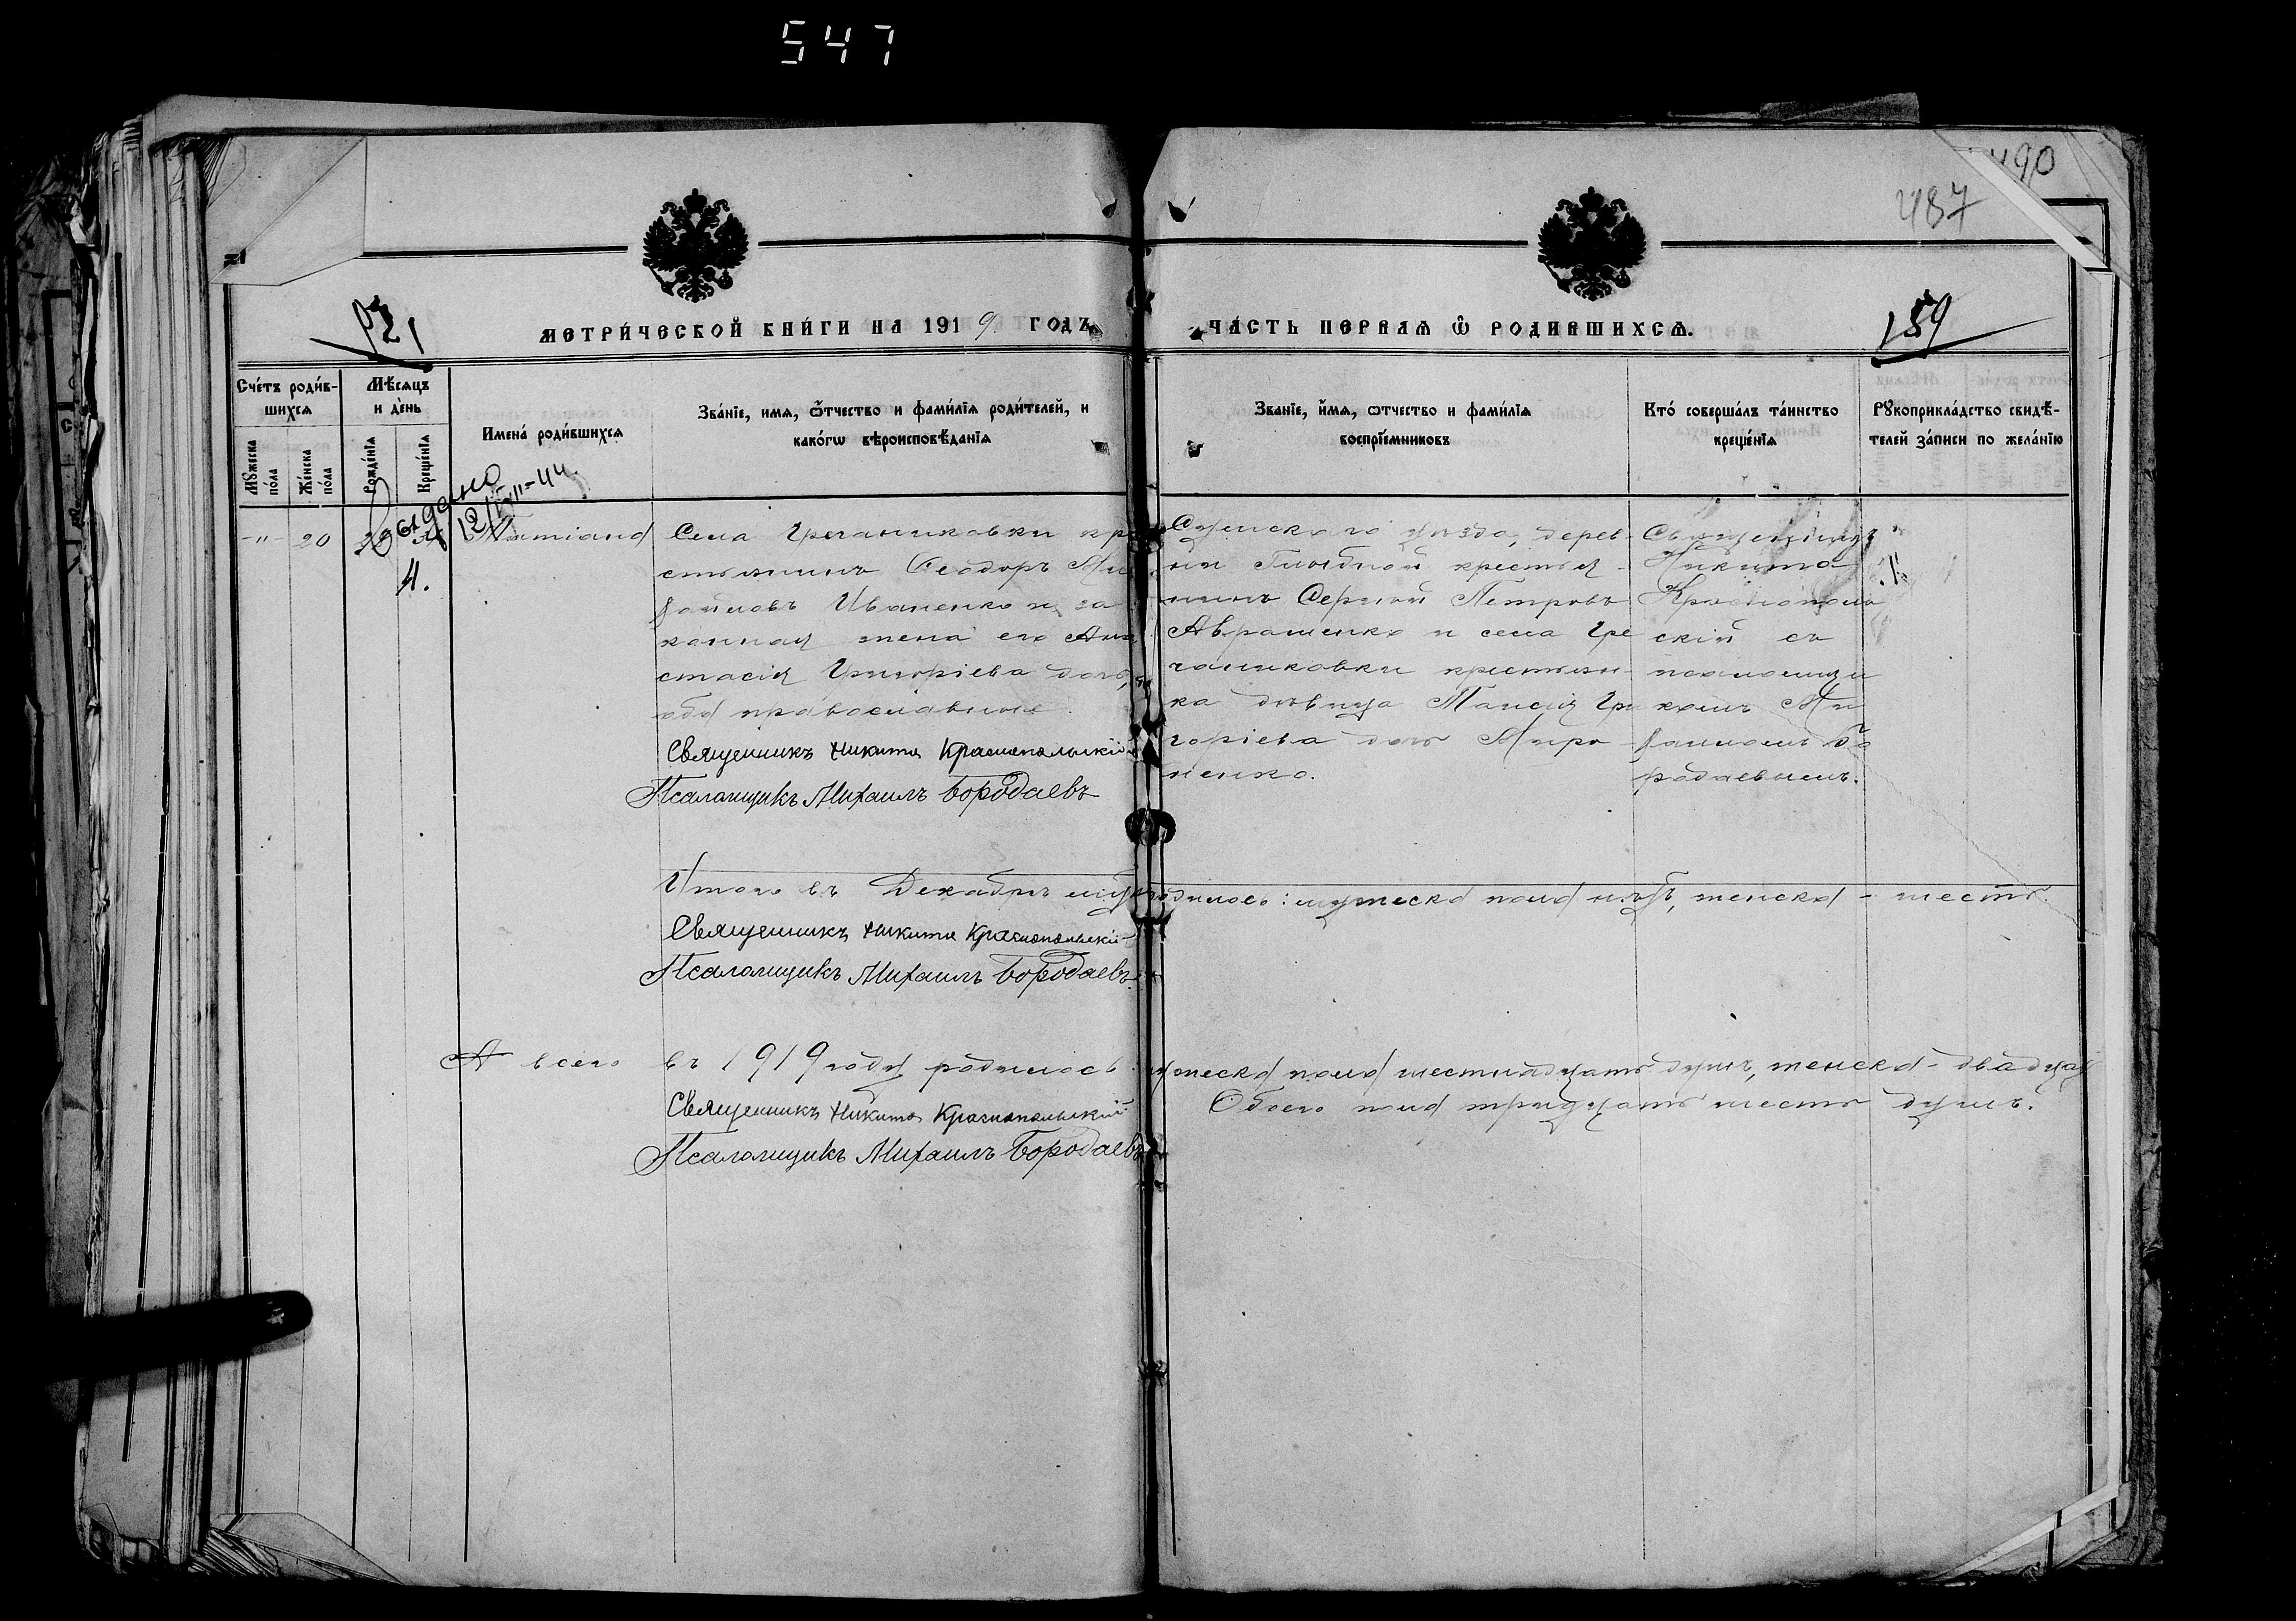 547
490
487
121
159
МЕТРИ́ЧЕСКОЙ КНИ́ГИ НА 1919 ГОДЪ
ЧА́СТЬ ПЕРВАѦ Ѿ РОДИВШИХСѦ.
Сче́тъ роди́в-
шихсѧ
Мꙋ́жеска по́ла
Же́нска по́ла
Мѣ́сѧцъ
и де́нь
Рожде́нїѧ
Креще́нїѧ
Имена́ роди́вшихсѧ
Зва́нїе, имѧ, ѻ҆́тчество и фами́лїѧ роди́телей, и
како́гѡ вѣроисповѣ́данїѧ
Зва́нїе, и́мѧ, ѻтчество и фами́лїѧ
воспрїе́мниковъ
Кто́ соверша́лъ та́инство
креще́нїѧ
Рꙋкоприкла́дство свидѣ́-
телей за́писи по жела́нїю
Выдано
-"- 20
4.
Села Гречаниковки кре
стьянинъ Ѳеодоръ Ми
хаиловъ Иваненко и за
конная жена его Ана
стасія Григоріева дочь,
оба православные.
Священникъ Никита Краснопольскій
Псаломщикъ Михаилъ Бородаевъ
Сумскаго уѣзда, дерев-
ни крестья-
нинъ Сергѣй Петровъ
Авраменко и села Гре
чаниковки крестьян-
ка дѣвица Таисія Гри
горіева дочь Миро-
ненко.
Священникъ
Никита
Краснополь
скій съ
псаломщи
комъ Ми
хаиломъ Бо
родаевымъ.
Итого въ Декабрѣ родилось: мужеска пола женска - шесть.
Священникъ Никита Краснопольскій
Псаломщикъ Михаилъ Бородаевъ
А всего въ 1919 году родилось мужеска пола шестнадцать душъ, женска - двадцать
Обоего пола тридцать шесть душъ.
Священникъ Никита Краснопольскій
Псаломщикъ Михаилъ Бородаевъ